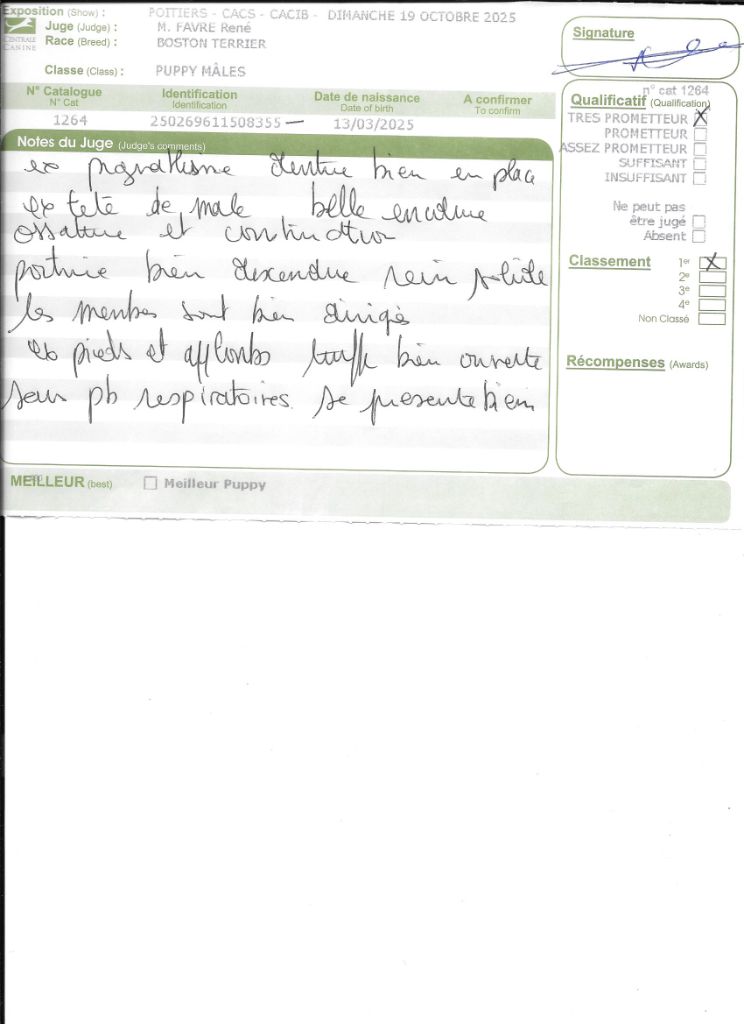 Exposition (Show) : POITIERS - CACS - CACIB - DIMANCHE 19 OCTOBRE 2025
Juge (Judge) : M. FAVRE René
Race (Breed) : BOSTON TERRIER
CENTRALE CANINE
Classe (Class) : PUPPY MÂLES
Signature
N° Catalogue N° Cat
Identification Identification
Date de naissance Date of birth
A confirmer To confirm
1264 250269611508355 13/03/2025
Notes du Juge (Judge's comments)
ex prognathisme denture bien en place
ex tete de male belle encolure
ossature et construction
poitrine bien descendue rein solide
les membres sont bien dirigés
ex pieds et applombs truffe bien ouverte
sans pb respiratoires se presente bien
n° cat 1264
Qualificatif (Qualification)
TRES PROMETTEUR X
PROMETTEUR
ASSEZ PROMETTEUR
SUFFISANT
INSUFFISANT
Ne peut pas
être jugé
Absent
Classement 1er X
2e
3e
4e
Non Classé
Récompenses (Awards)
MEILLEUR (best) Meilleur Puppy